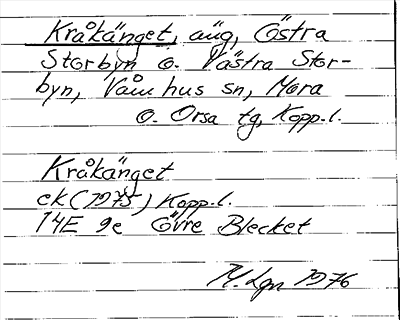 Kråkänget, äng, Östra
Storbyn o. Västra Stor-
byn, Våmhus sn, Mora
o. Orsa tg, Kopp.l.
Kråkänget
ek (1975) Kopp.l.
14E 9e Övre Blecket
M.Lgn 1976